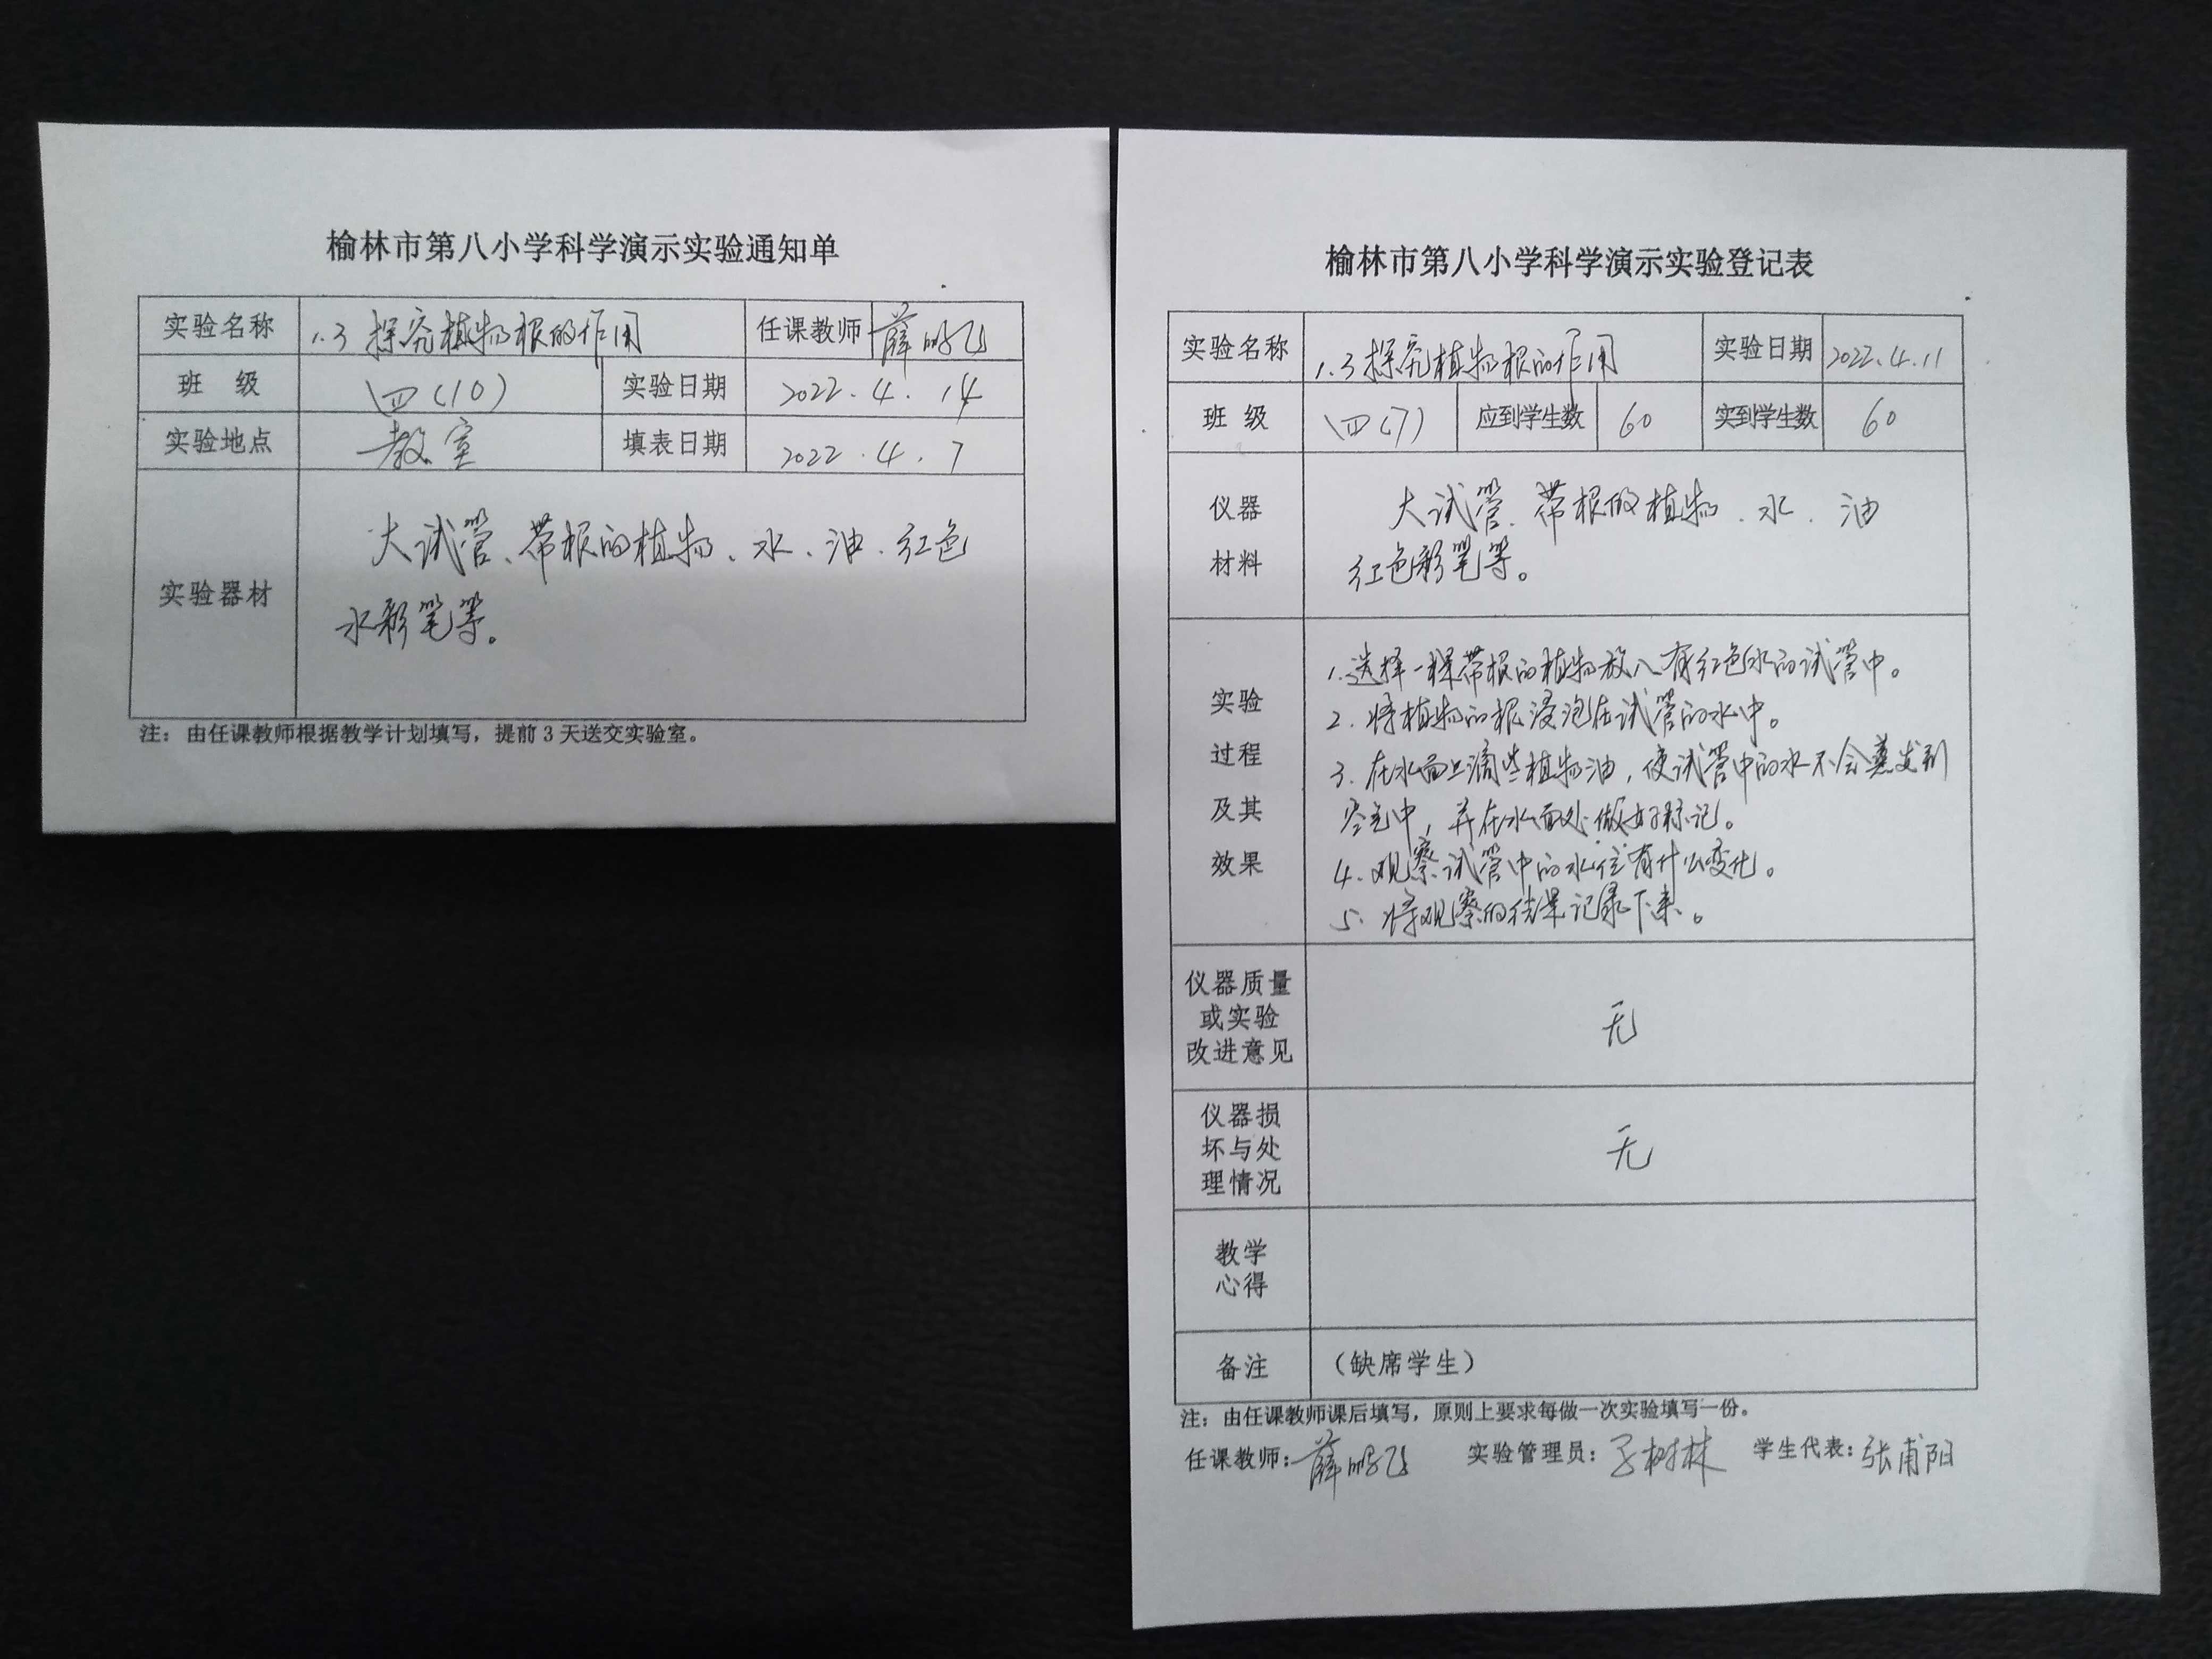 榆林市第八小学科学演示实验通知单
实验名称 1.3 探究植物根的作用 任课教师 薛鹏飞
班 级 四(10) 实验日期 2022.4.14
实验地点 教室 填表日期 2022.4.7
实验器材 大试管、带根的植物、水、油、红色
水彩笔等。
注：由任课教师根据教学计划填写，提前3天送交实验室。
榆林市第八小学科学演示实验登记表
实验名称 1.3 探究植物根的作用 实验日期 2022.4.11
班 级 四(7) 应到学生数 60 实到学生数 60
仪器
材料
大试管、带根的植物、水、油
红色彩笔等。
实验
过程
及其
效果
1.选择一棵带根的植物放入有红色水的试管中。
2.将植物的根浸泡在试管的水中。
3.在水面上滴些植物油，使试管中的水不会蒸发到
空气中，并在水面处做好标记。
4.观察试管中的水位有什么变化。
5.将观察的结果记录下来。
仪器质量
或实验
改进意见
无
仪器损
坏与处
理情况
无
教学
心得
备注 （缺席学生）
注：由任课教师课后填写，原则上要求每做一次实验填写一份。
任课教师：薛鹏飞 实验管理员：树林 学生代表：张甫阳